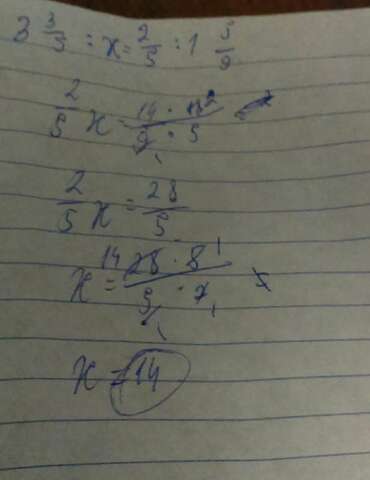 3 3/5 : x = 2/5 : 1 5/9
2/5 x = 14 · 18 2 / 9 1 · 5
2/5 x = 28/5
x = 14 28 · 8 1 / 5 1 · 2 1
x = 14